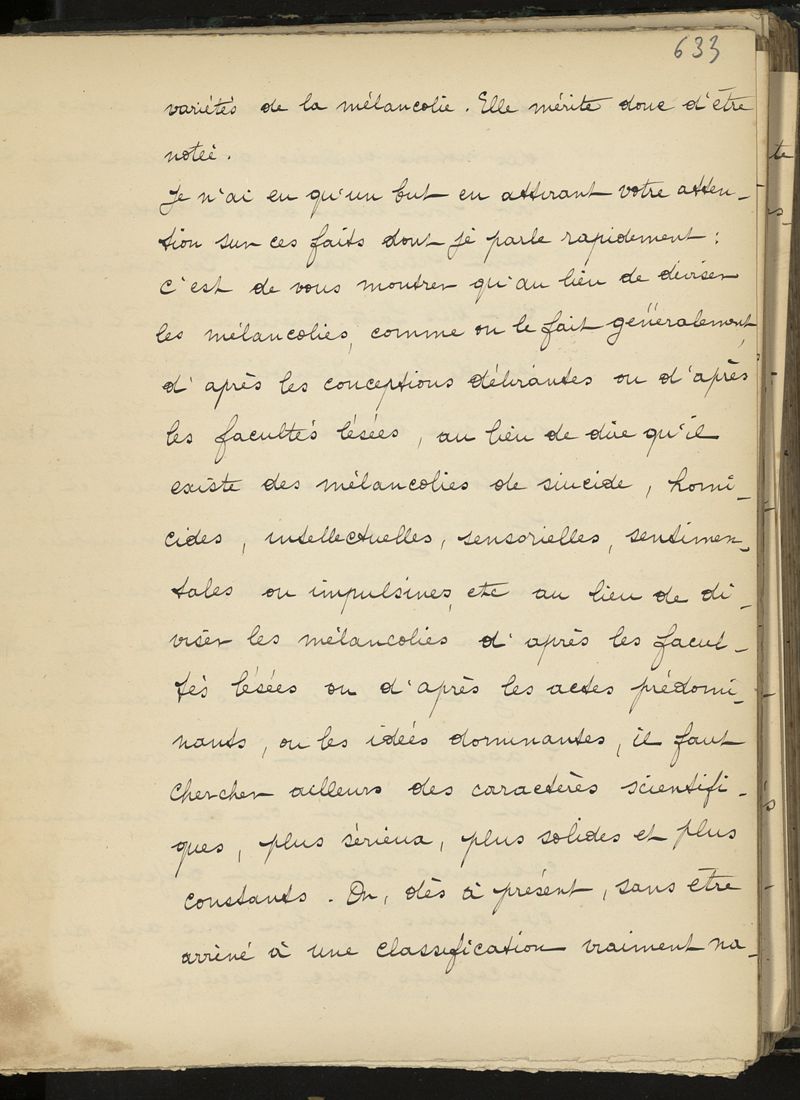 633
variétés de la mélancolie. Elle mérite donc d'être
notée.
Je n'ai eu qu'un but en attirant votre atten-
tion sur ces faits dont je parle rapidement :
c'est de vous montrer qu'au lieu de diviser
les mélancolies, comme on le fait généralement,
d'après les conceptions délirantes ou d'après
les facultés lésées, au lieu de dire qu'il
existe des mélancolies de suicide, homi-
cides, intellectuelles, sensorielles, sentimen-
tales ou impulsives, etc au lieu de di-
viser les mélancolies d'après les facul-
tés lésées ou d'après les actes prédomi-
nants, ou les idées dominantes, il faut
chercher ailleurs des caractères scientifi-
ques, plus sérieux, plus solides et plus
constants. Or, dès à présent, sans être
arrivé à une classification vraiment na-